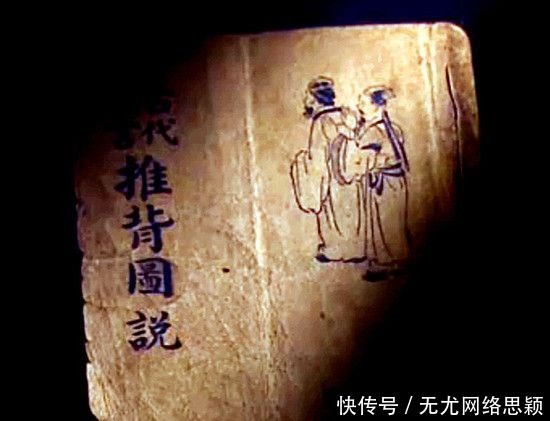 代
推背圖説
快传号 / 无尤网络思颖